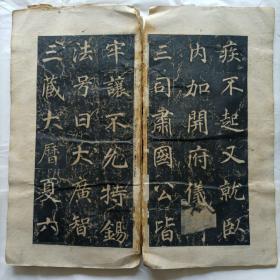 疾不起又就臥
内加開府儀
三司肅國公皆
牢讓不允特錫
法号曰大廣智
三藏大曆夏六